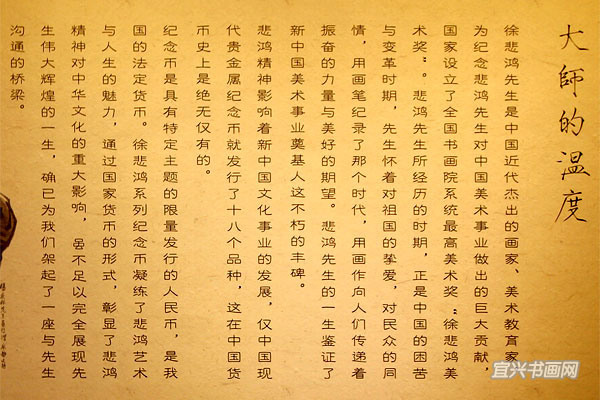 大師的温度
徐悲鸿先生是中国近代杰出的画家、美术教育家，
为纪念悲鸿先生对中国美术事业做出的巨大贡献，
国家设立了全国书画院系统最高美术奖“徐悲鸿美
术奖”。悲鸿先生所经历的时期，正是中国的困苦
与变革时期，先生怀着对祖国的挚爱，对民众的同
情，用画笔纪录了那个时代，用画作向人们传递着
振奋的力量与美好的期望。悲鸿先生的一生鉴证了
新中国美术事业奠基人这不朽的丰碑。
悲鸿精神影响着新中国文化事业的发展，仅中国现
代贵金属纪念币就发行了十八个品种，这在中国货
币史上是绝无仅有的。
纪念币是具有特定主题的限量发行的人民币，是我
国的法定货币。徐悲鸿系列纪念币凝练了悲鸿艺术
与人生的魅力，通过国家货币的形式，彰显了悲鸿
精神对中华文化的重大影响，虽不足以完全展现先
生伟大辉煌的一生，确已为我们架起了一座与先生
沟通的桥梁。
宜兴书画网